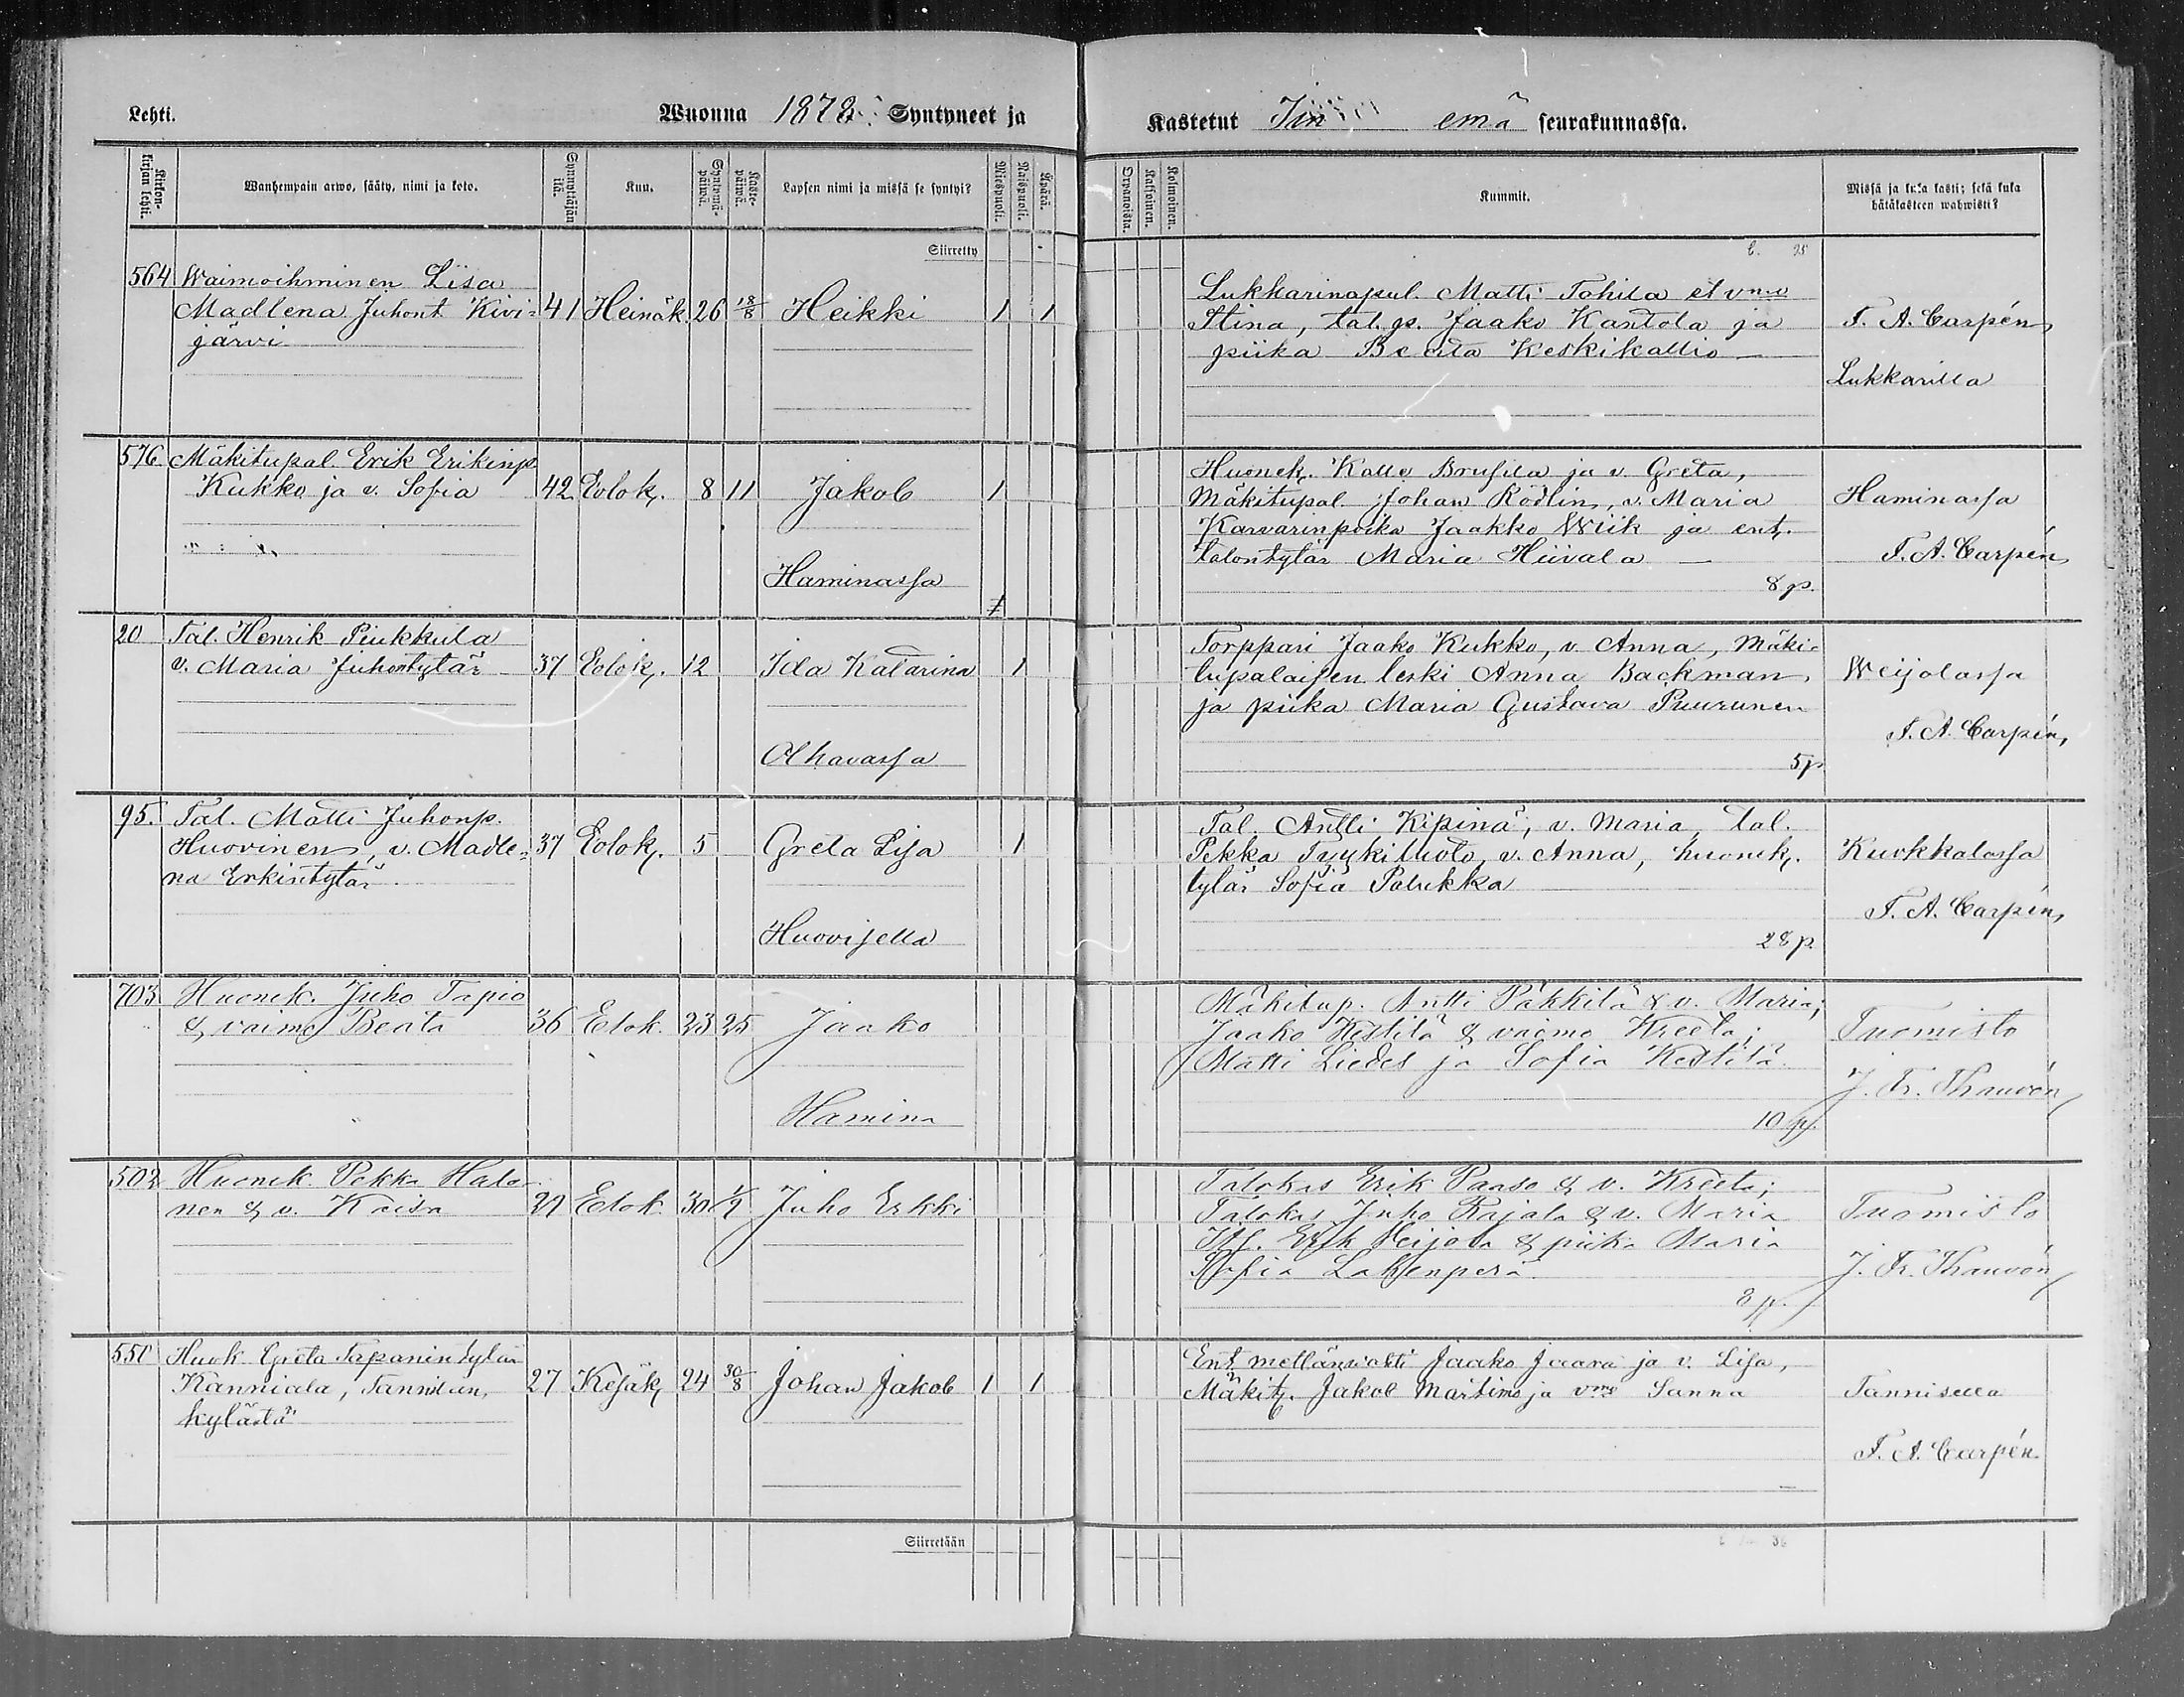 Lehti.
Wuonna 1878 Syntyneet ja
Kirkonkirjan lehti.
Wanhempain arwo, sääty, nimi ja koto.
Synnyttäjän ikä.
Kuu.
Syntymäpäiwä.
Kastepäiwä.
Lapsen nimi ja missä se syntyi?
Miespuoli.
Naispuoli.
Äpärä.
Siirretty
564 Waimoihminen Liisa
Madlena Juhont Kivi= 41 Heinäk. 26 18/8 Heikki 1 1
järvi
576. Mäkitupal. Erik Erikinp
Kukko ja v. Sofia 42 Elok. 8 11 Jakob 1
Haminassa
20 Tal. Henrik Piukkula
v. Maria Juhontytär 37 Elok. 12 Ida Katarina 1
Olhavassa
95. Tal. Matti Juhonp.
Huovinen, v. Madle= 37 Elok. 5 Greta Lisa 1
na Erkintytär.
Huovisella
703 Huonek. Juho Tapio
& vaimo Beata 36 Elok. 23 25 Jaako
Hamina
502 Huonek. Pekka Halo-
nen & v. Kaisa 29 Elok. 30 1/9 Juho Erkki
551 Huok Greta Tapanintytär
Kanniala, Tannilan 27 Kesäk. 24 30/8 Johan Jakob 1 1
kylästä
Siirretään
Kastetut Iin emä seurakunnassa.
Orpanoista.
Kaksoinen.
Kolmoinen.
Kummit.
Missä ja kuka kasti; sekä kuka
hätäkasteen wahwisti?
Lukkarinapul. Matti Tohila et vmo
Stina, tal. ps. Jaako Kantola ja
piika Beata Keskikallio
F. A. Carpén,
Lukkarilla
Huonek. Kalle Brusila ja v. Greta,
Mäkitupal. Johan Rödlin, v. Maria
Karvarinpoika Jaakko Wiik ja ent.
talontytär Maria Hiivala
8 p.
Haminassa
F. A. Carpén
Torppari Jaako Kukko, v. Anna, Mäki=
tupalaisen leski Anna Backman,
ja piika Maria Gustava Puurunen
5 p.
Weijolassa
F. A. Carpén,
Tal. Antti Kipinä, v. Maria, tal.
Pekka Tyykiluoto, v. Anna, huonek.
tytär Sofia Palukka
28 p.
Kurkkalassa
F. A. Carpén,
Mäkitup. Antti Päkkilä & v. Maria;
Jaako Kestilä & vaimo Kreeta;
Matti Liedes ja Sofia Kestilä.
10 p.
Tuomisto
J. Fr. Thauvón
Talokas Erik Paaso & v. Kreeta;
Talokas Juho Rajala & v. Maria
Itll. Erik Veijola & piika Maria
Sofia Lakenperä.
8 p.
Tuomisto
J. Fr. Thauvón
Ent mettänvahti Jaako Jaara ja v. Lisa,
Mäkit. Jakob Martimo ja vmo Sanna
Tannisella
F. A. Carpén